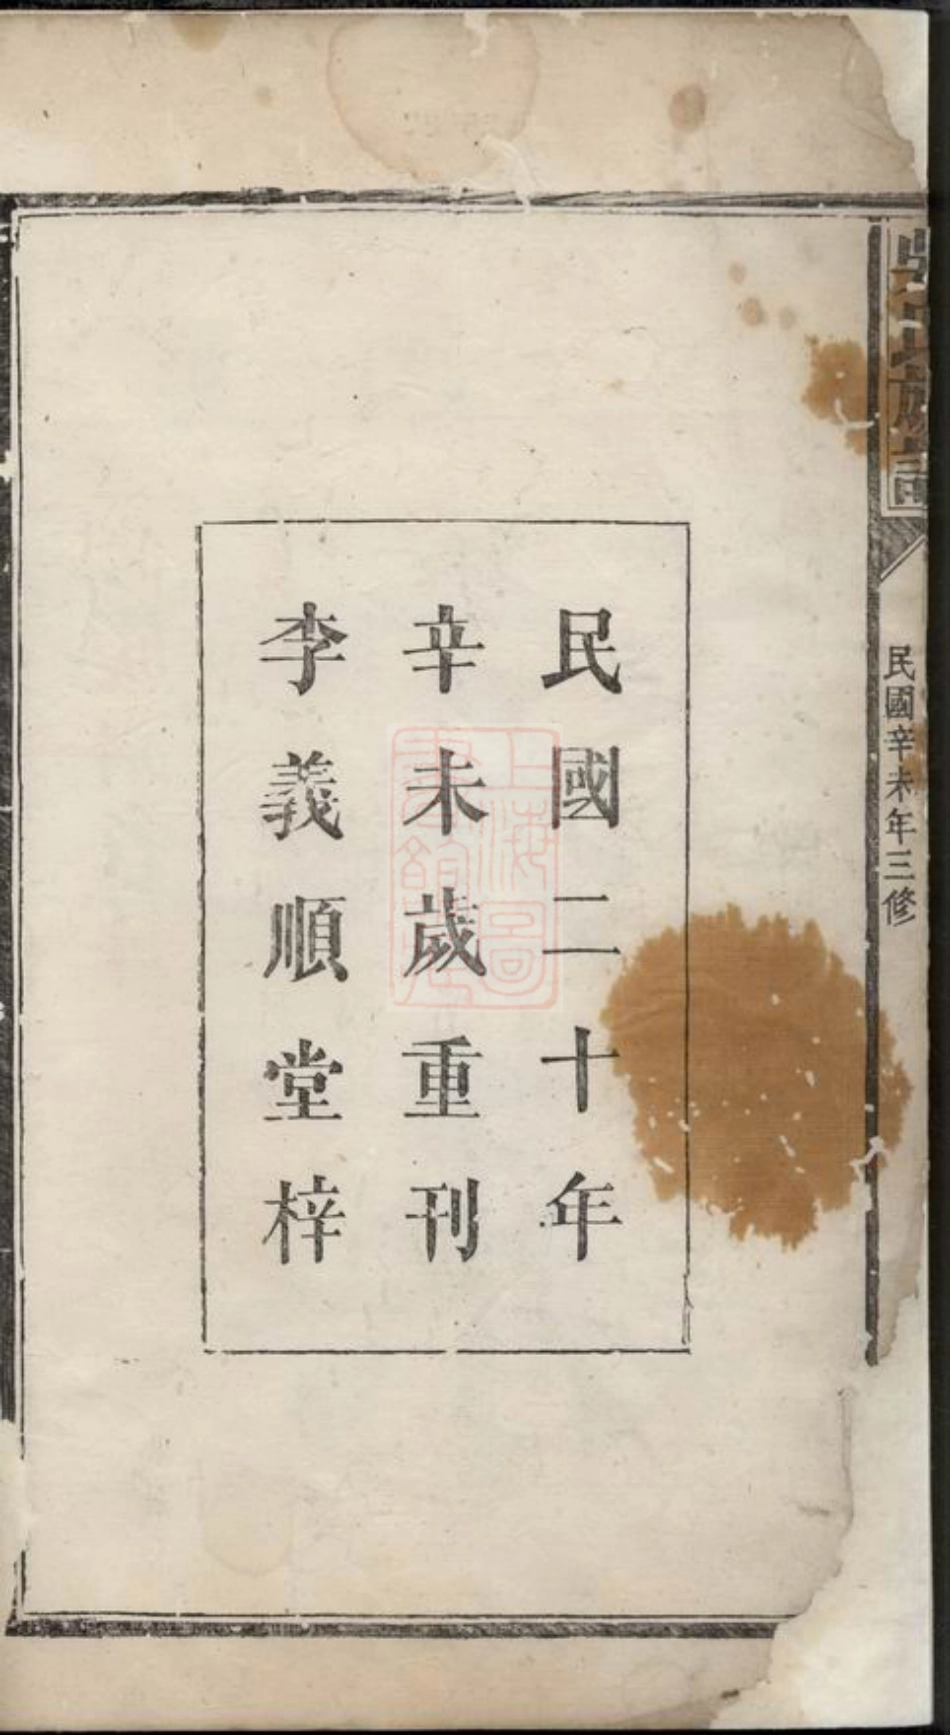 民國二十年
辛未歲重刊
李義順堂梓
氏族譜
民國辛未年三修
上海圖書館藏